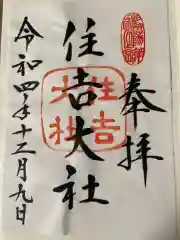 奉拝
住吉大社
住吉大社
令和四年十二月九日